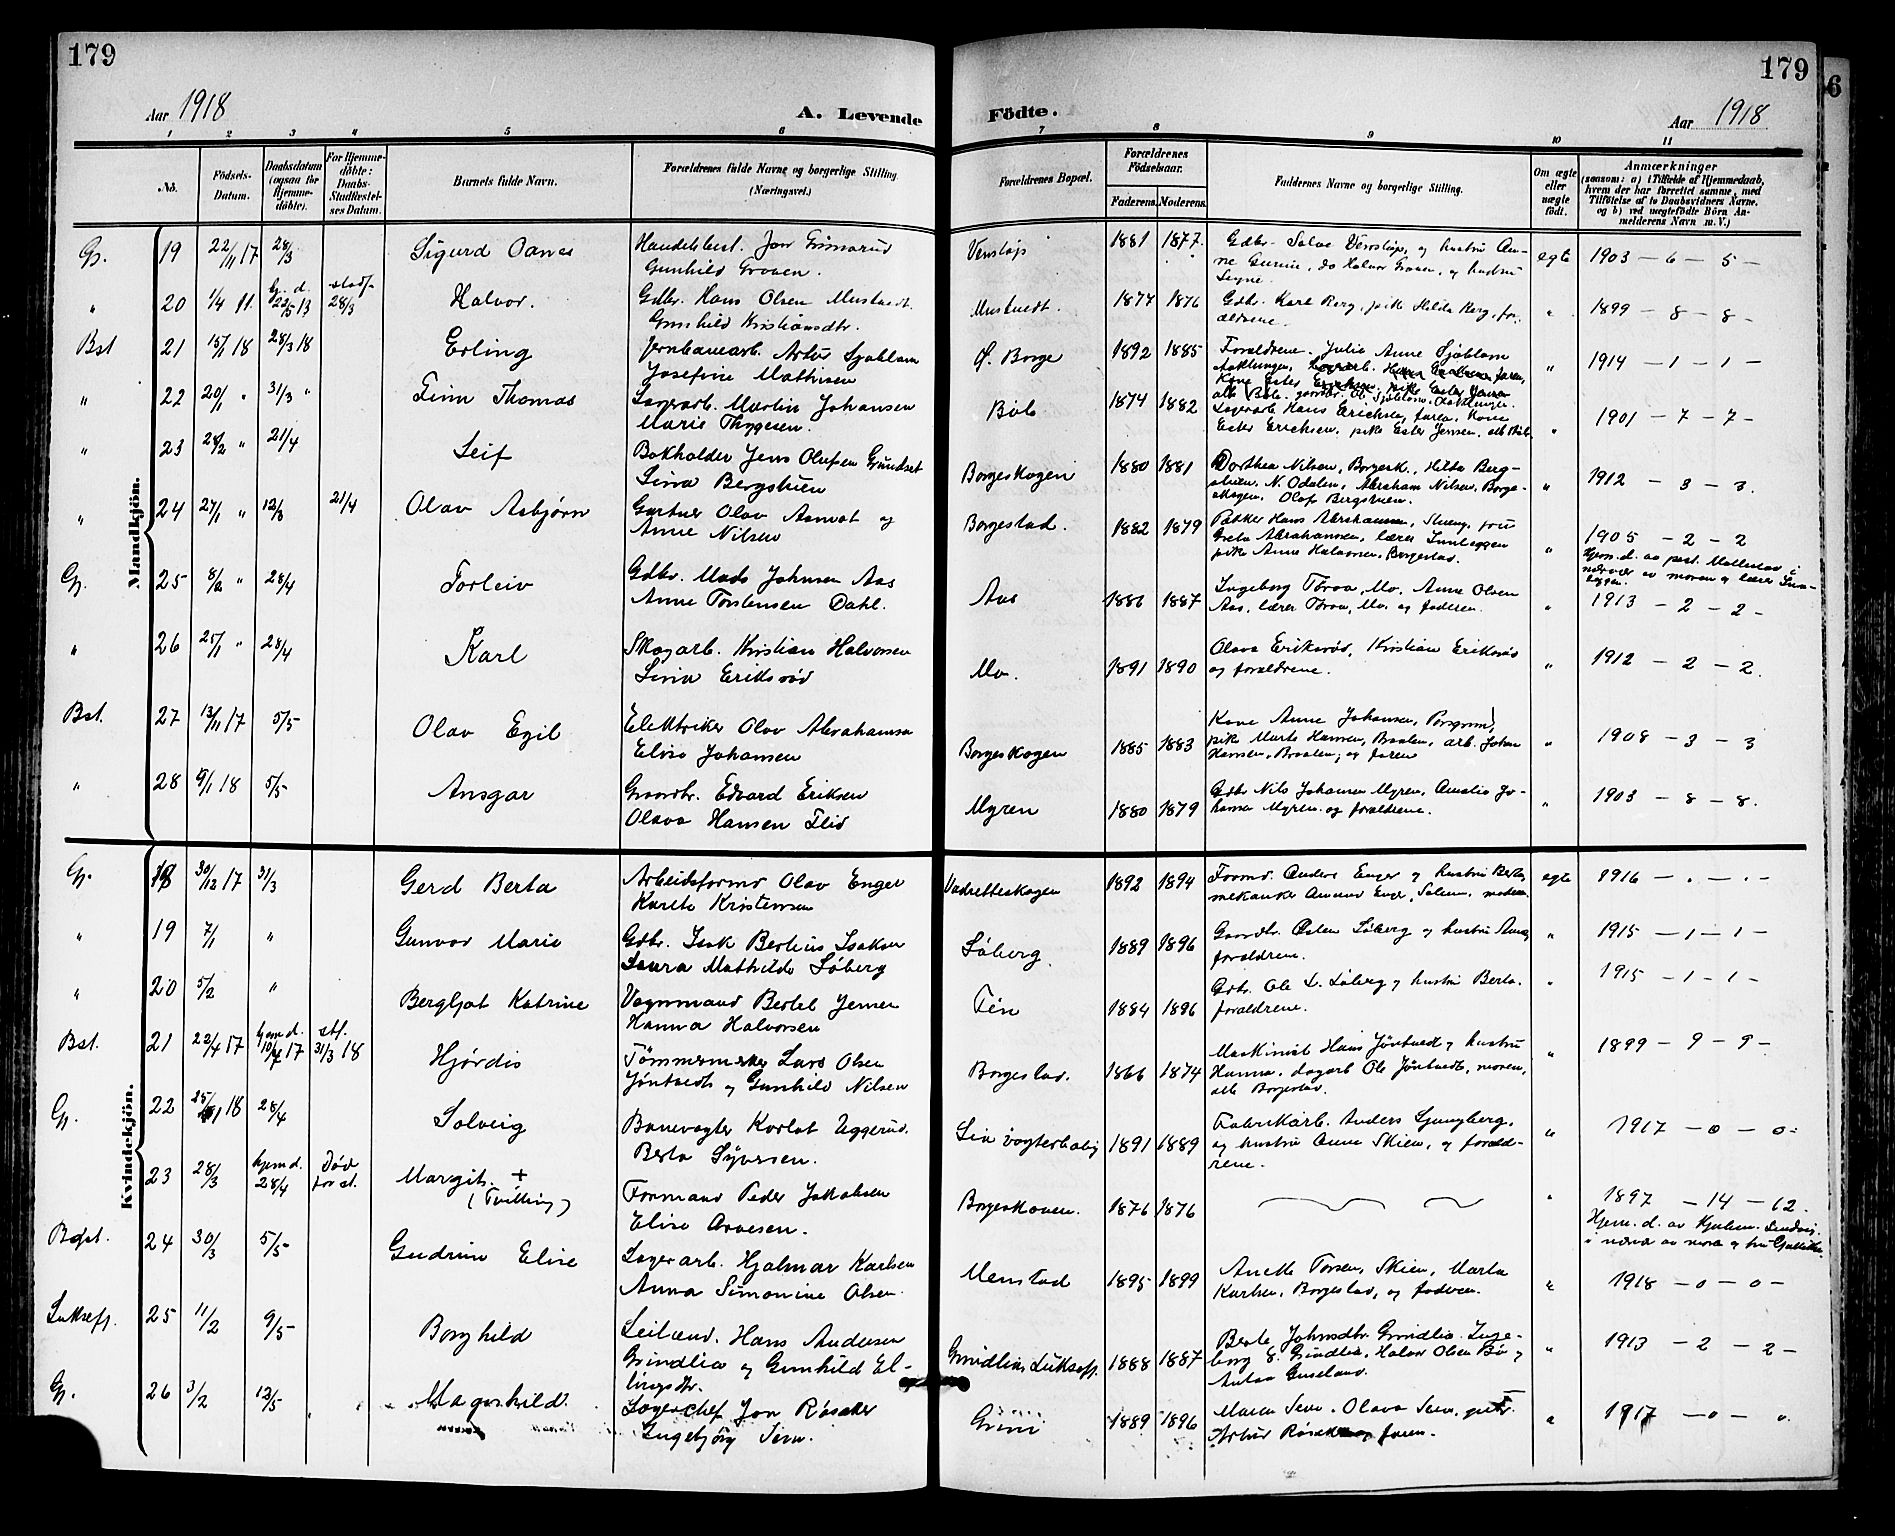 179
179
6
Aar 1918
A. Levende
Födte.
Aar 1918
1 2 3 4 5 6 7 8 9 10 11
No.
Födsels-
Datum.
Daabsdatum
(ogsaa for
Hjemme-
döbte).
For Hjemme-
döbte:
Daabs-
Stadfæstel-
ses Datum.
Barnets fulde Navn.
Forældrenes fulde Navne og borgerlige Stilling
(Næringsvei.)
Forældrenes Bopæl.
Forældrenes
Födselsaar.
Faderens. Moderens.
Faddernes Navne og borgerlige Stilling.
Om ægte
eller
uægte
födt.
Anmærkninger
(saasom: a) i Tilfælde af Hjemmedaab,
hvem der har forrettet samme, med
Tilföielse af to Daabsvidners Navne.
og b) ved uægtefödte Börn An-
melderens Navn m. V.)
Mandkjön.
Gp. 19 22/11 17 28/3 Sigurd
Gunhild Graaen.
Venstøp 1881 1877. egte 1903 – 6 – 5 –
" 20 1/4 11. Hj. d. 22/5 13 stadf. 28/3 Halvor. Gdbr. Hans Olsen Mustvedt.
Gunhild Kristiansdtr.
Mustvedt. 1874 1876 Gdbr. Karl Berg, pike Hilda Berg, for-
ældrene. " 1899 – 8 – 8 –
Bst 21 15/1 18 28/3 18 Erling Jernbanearb. Artur Sjøblom
Josefine Mathisen
Ø. Borge 1892 1885 Forældrene. Julie Anne Sjøblom " 1914 – 1 – 1 –
" 22 20/1 " 31/3 " Finn Thomas Lagerarb. Martin Johansen
Marie Thygesen.
Bøle 1874 1882 Lagerarb. Hans Erichsen, faren, Kone
Ester Erichsen, pike Ester Jensen, alle Bøle. " 1901 – 7 – 7 –
" 23 28/2 " 21/4 Leif Bokholder Jens Olufsen Grundset
Lina Bergstuen
Borgeskogen 1880 1881 Dorthea Nilsen, Borgesk., Hilda Berg-
stuen, N. Odalen, Abraham Nilsen, Borge-
skogen, Olaf Bergstuen. " 1912 – 3 – 3.
" 24 27/1 " 12/3 21/4 Olav Asbjørn Gartner Olav Aamot og
Anne Nilsen
Borgestad. 1882 1879 Hans Abrahamsen, fru
Greta Abrahamsen, lærer
pike Anna Halvorsen, Borgestad. " 1905 – 2 – 2
Gp. 25 8/2 " 28/4 Torleiv Gdbr. Mads Johnsen Aas
Anne Torstensen Dahl.
Aas 1886 1887 Ingeborg Traa, Mo, Anne Olsen
Aas, lærer Traa, Mo. og faderen. " 1913 – 2 – 2 –
" 26 25/1 " 28/4 Karl Skogarb. Kristian Halvorsen
Lina Eriksrød
Mo. 1891 1890 Olava Eriksrød, Kristian Eriksrød
og forældrene. " 1912 – 2 – 2.
Bst. 27 13/11 17 5/5 Olav Egil Elektriker Olav Abrahamsen
Elise Johansen
Borgeskogen 1885 1883 Kone Anne Johansen, Porsgrund,
pike Marte Hansen, Braaten, arb. Johan
Hansen, Braaten, og faren " 1908 – 3 – 3
" 28 9/1 18 5/5 Ansgar Gaardbr. Edvard Eriksen
Olava Hansen Flid
Myren 1880 1879 Gdbr. Nils Johansen Myren, Amalie Jo-
hansen Myren og forældrene. " 1903 – 8 – 8.
Kvindekjön.
Gp. 18 30/12 17 31/3 Gerd Berta Arbeidsformd Olav Enger
Karete Kristensen
Vadretteskogen 1892 1894 Formd. Andor Enger og hustru Berta, egte 1916 – . – . –
" 19 7/1 " Gunvor Marie Gdbr. Isak Bertius Isaksen
Laura Mathilde Løberg
Løberg 1889 1896 Gaardbr. Østen Løberg og hustru
forældrene. " 1915 – 1 – 1 –
" 20 5/2 " Bergljot Katrine Vognmand Bertel Jensen
Hanna Halvorsen
1884 1896 Gdbr. Ole L. Løberg og hustru Berta.
forældrene. " 1915 – 1 – 1 –
Bst. 21 22/4 17 hjemd. 17 stf. 31/3 18 Hjørdis Tømmermester Lars Olsen
Jøntvedt og Gunhild Nilsen
Borgestad. 1866 1874 Maskinist Hans Jøntvedt og hustru
Hanna, dagarb Ole Jøntvedt, moren,
alle Borgestad. " 1899 – 9 – 9 –
Gp. 22 18 28/4 Solveig Banevogter Karlot Uggerud.
Berta Syversen.
1891 1889 Fabrikarb. Anders Ljungberg,
og hustru Anne Skien, og foræld-
rene. " 1917 – 0 – 0 –
23 28/3 hjemd. 28/4 Død Margit. +
(Tvilling) Formand Peder Jakobsen
Elise Arvesen.
Borgeskoven. 1876 1876 " 1897 – 14 – 12.
24 30/3 5/5 Gudrun Elise Lagerarb. Hjalmar Karlsen
Anna Simonine Olsen.
Menstad 1895 1899 Anette Torsen, Skien, Marta
Karlsen, Borgestad, og faderen. " 1918 – 0 – 0 –
Luksefj. 25 11/2 9/5 Borghild Leilænd. Hans Andersen
Grindlia og Gunhild El-
lingsdtr.
Grindlia, Luksefj. 1888 1887 Berte Johnsdtr. Grindlia, Inge-
borg E. Grindlia, Halvor Olsen Bø og " 1913 – 2 – 2 –
Gp. 26 3/2 12/5 Magnhild. Lagerchef Jon Røsaker
Ingebjørg
Grini 1889 1896 faren. " 1917 – 0 – 0.